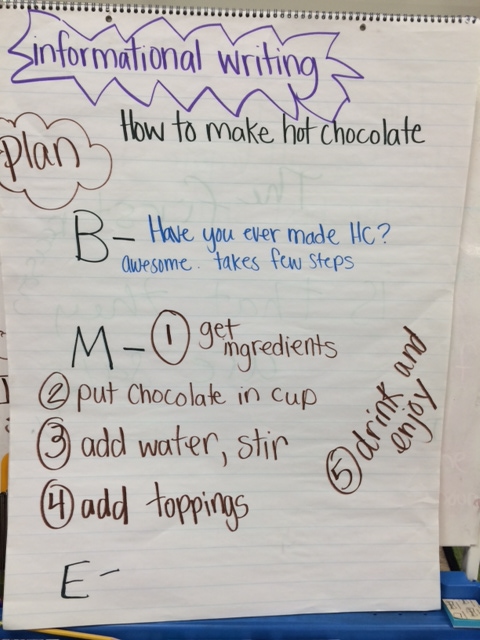 informational writing
How to make hot chocolate
Plan
B- Have you ever made HC?
awesome. takes few steps
M- 1 get
ingredients
2 put chocolate in cup
3 add water, stir
4 add toppings
5 drink and
enjoy
E-